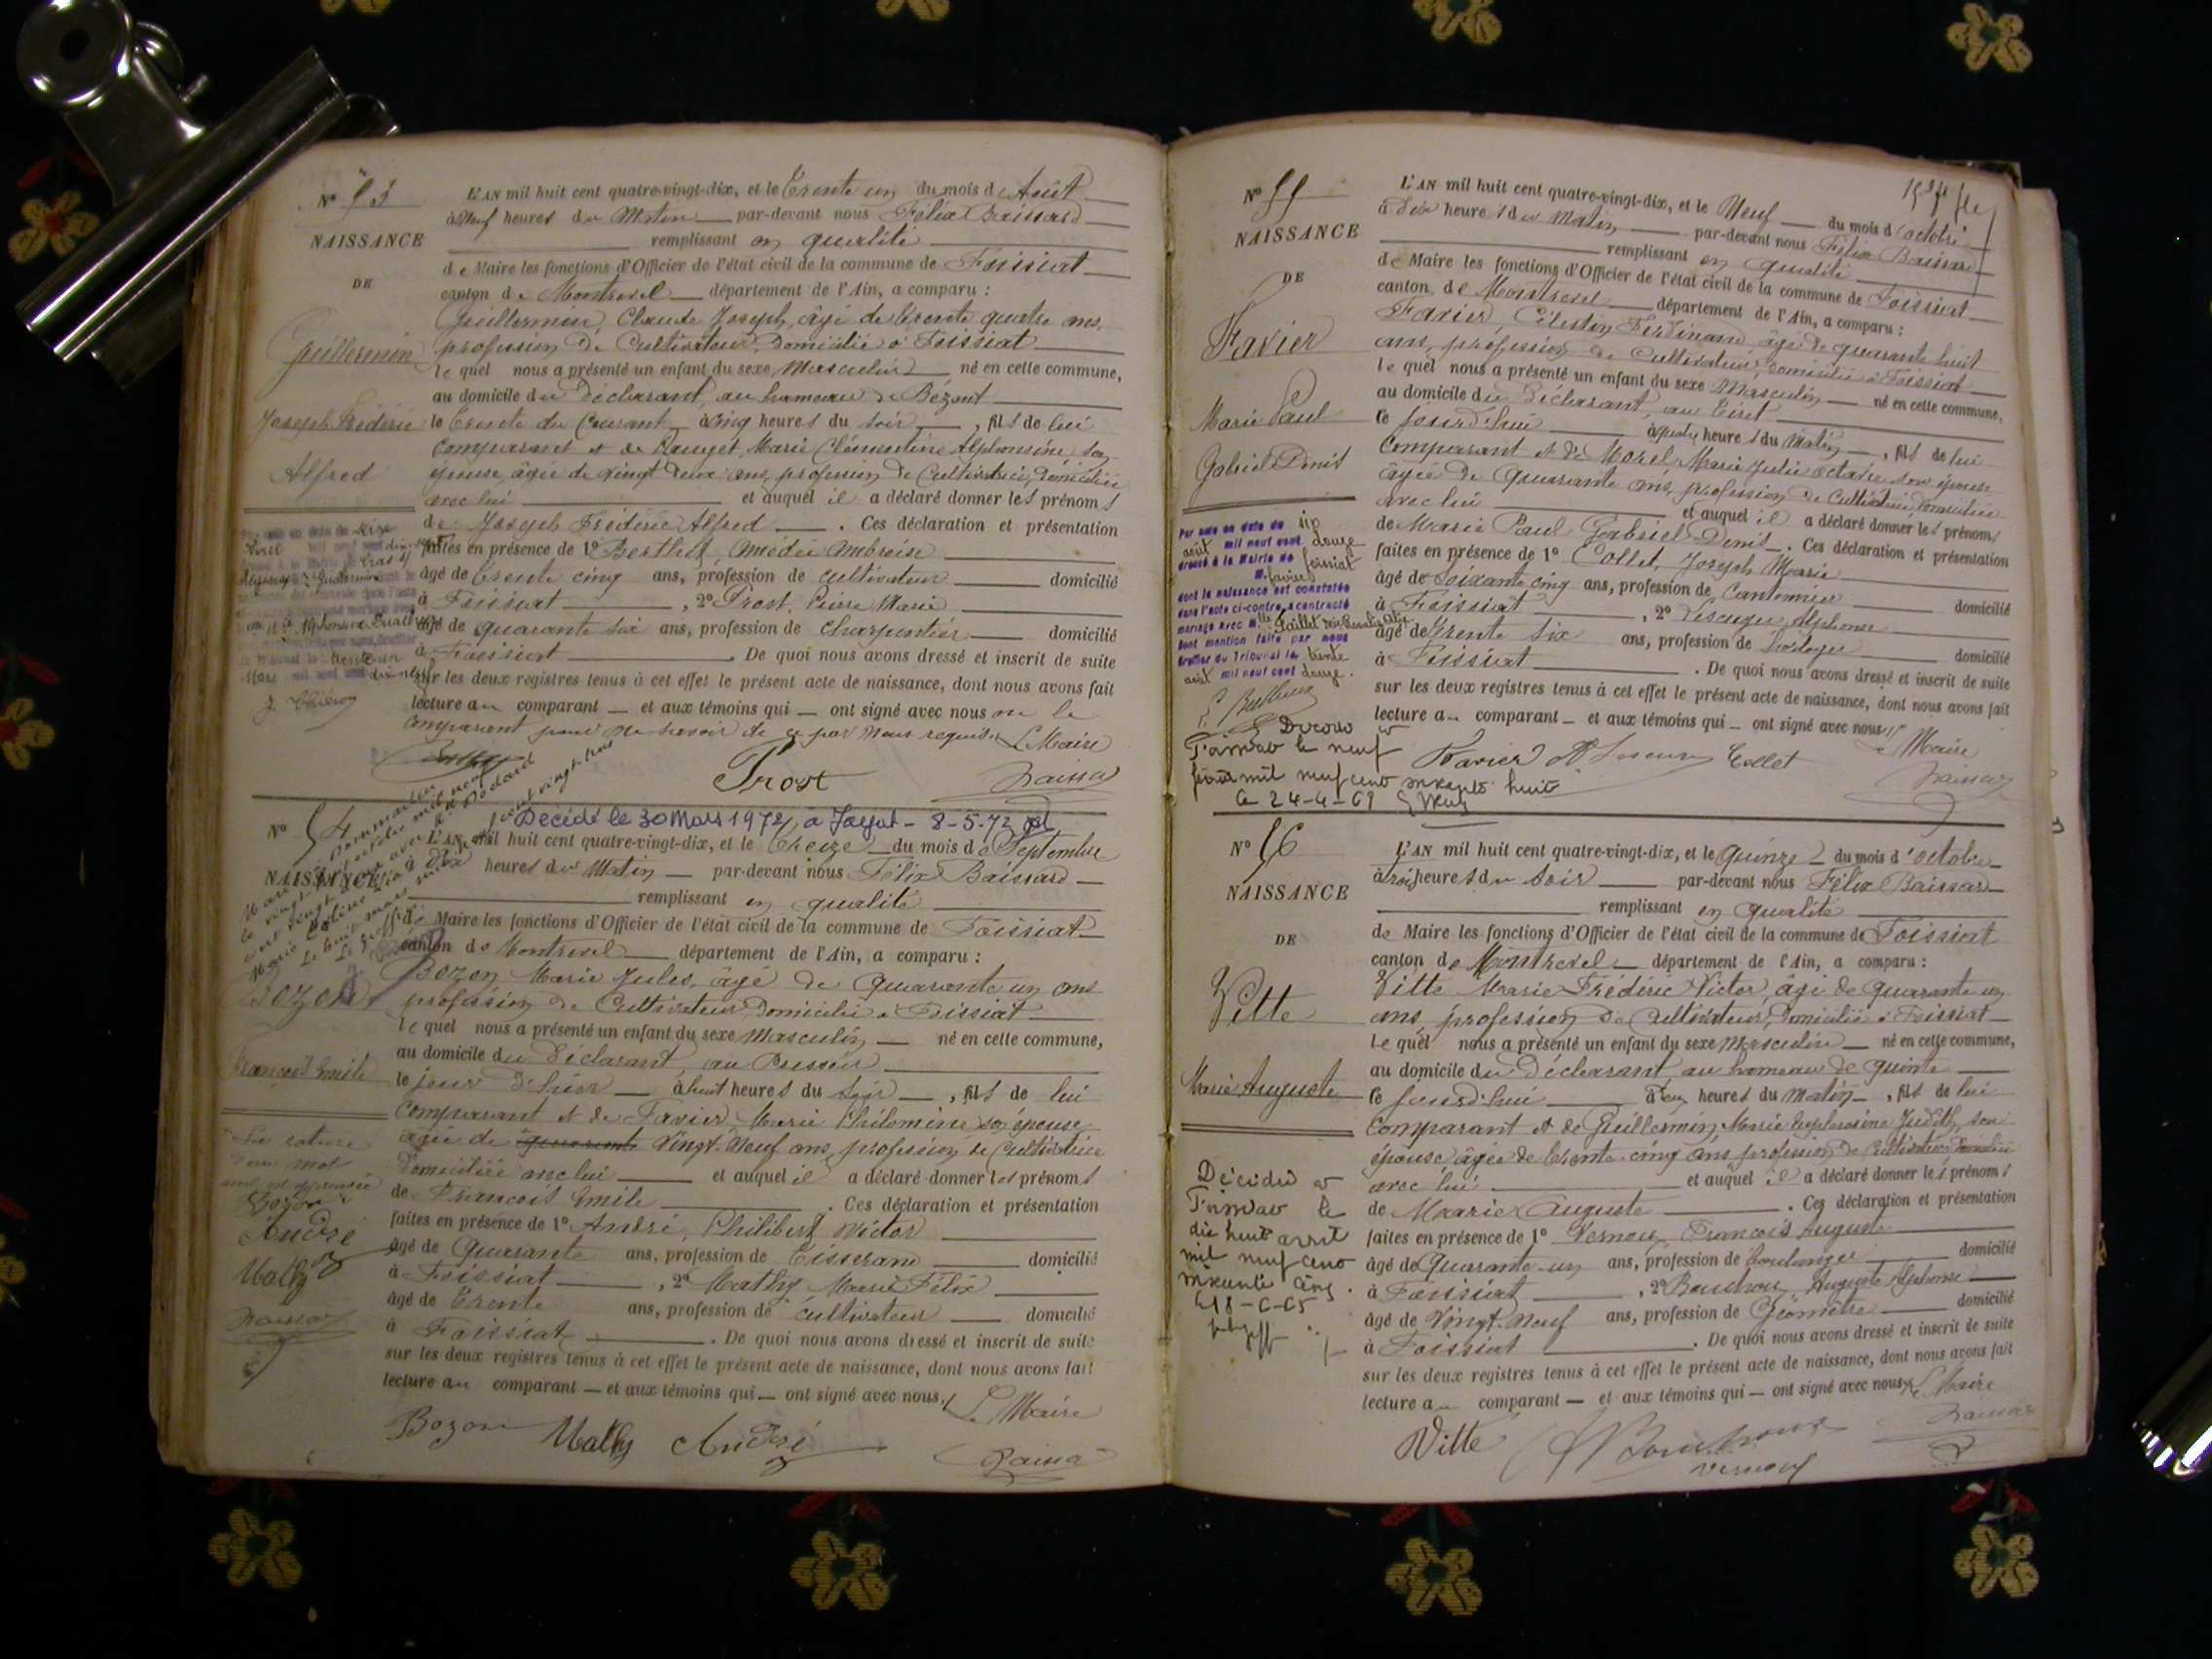 N° 53
NAISSANCE
DE
Guillermin
Joseph Frédéric
Alfred
L'AN mil huit cent quatre-vingt-dix, et le Trente un du mois d'Août
à Neuf heures du Matin par-devant nous Félix Baissard
remplissant en qualité
de Maire les fonctions d'Officier de l'état civil de la commune de Foissiat
canton de Montrevel département de l'Ain, a comparu :
Guillermin, Claude Joseph, âgé de trente quatre ans,
profession de Cultivateur, domicilié à Foissiat
lequel nous a présenté un enfant du sexe Masculin né en cette commune,
au domicile du Déclarant, au hameau de Bézent
le trente du Courant à Cinq heures du soir, fils de lui
Comparant et de Marie Clémentine Alphonsine son
épouse âgée de vingt deux ans, profession de Cultivatrice, domiciliée
avec lui et auquel il a déclaré donner les prénoms
de Joseph Frédéric Alfred. Ces déclaration et présentation
faites en présence de 1° Berthet, Amédée Ambroise
âgé de trente cinq ans, profession de cultivateur domicilié
à Foissiat, 2° Prost, Pierre Marie
âgé de quarante six ans, profession de charpentier domicilié
à Foissiat. De quoi nous avons dressé et inscrit de suite
sur les deux registres tenus à cet effet le présent acte de naissance, dont nous avons fait
lecture au comparant et aux témoins qui ont signé avec nous non le
comparant pour ne savoir de ce par nous requis. Le Maire
Prost
N° 54
NAISSANCE
Bozon
François Emile
Décédé le 30 Mars 1972 à Jayat - 8-5-72
L'AN mil huit cent quatre-vingt-dix, et le treize du mois de Septembre
à dix heures du Matin par-devant nous Félix Baissard
remplissant en qualité
de Maire les fonctions d'Officier de l'état civil de la commune de Foissiat
canton de Montrevel département de l'Ain, a comparu :
Bozon, Marie Jules, âgé de quarante un ans
profession de Cultivateur, domicilié à Foissiat
lequel nous a présenté un enfant du sexe Masculin né en cette commune,
au domicile du Déclarant, au
le jour d'hier à huit heures du soir, fils de lui
Comparant et de Favier, Marie Philomène son épouse
âgée de quarante Vingt-Neuf ans, profession de Cultivatrice
domiciliée avec lui et auquel il a déclaré donner les prénoms
de François Emile. Ces déclaration et présentation
faites en présence de 1° André, Philibert Victor
âgé de Quarante ans, profession de Tisserand domicilié
à Foissiat, 2° Mathy Marie Félix
âgé de Trente ans, profession de cultivateur domicilié
à Foissiat. De quoi nous avons dressé et inscrit de suite
sur les deux registres tenus à cet effet le présent acte de naissance, dont nous avons fait
lecture au comparant et aux témoins qui ont signé avec nous,
Le Maire
Bozon Mathy André
La rature
d'un mot
Bozon
André
Mathy
N° 55
NAISSANCE
DE
Favier
Marie Paul
Gabriel Denis
L'AN mil huit cent quatre-vingt-dix, et le Neuf du mois d'octobre
à Dix heures du Matin par-devant nous Félix Baissard
remplissant en qualité
de Maire les fonctions d'Officier de l'état civil de la commune de Foissiat
canton de Montrevel département de l'Ain, a comparu :
Favier, Célestin Ferdinand âgé de quarante huit
ans, profession de Cultivateur, domicilié à Foissiat
lequel nous a présenté un enfant du sexe Masculin né en cette commune,
au domicile du Déclarant, au Tiret
ce jourd'hui à quatre heures du Matin, fils de lui
Comparant et de Morel Marie Julie Octavie son épouse
âgée de quarante ans, profession de Cultivatrice, domiciliée
avec lui et auquel il a déclaré donner les prénoms
de Marie Paul Gabriel Denis. Ces déclaration et présentation
faites en présence de 1° Collet, Joseph Marie
âgé de soixante cinq ans, profession de Cantonnier domicilié
à Foissiat, 2° Lescuyer, Alphonse
âgé de trente six ans, profession de horloger domicilié
à Foissiat. De quoi nous avons dressé et inscrit de suite
sur les deux registres tenus à cet effet le présent acte de naissance, dont nous avons fait
lecture au comparant et aux témoins qui ont signé avec nous
Le Maire
Favier Collet
Par acte en date du six
août mil neuf cent douze
dressé à la Mairie de Foissiat
M. Favier
dont la naissance est constatée
dans l'acte ci-contre, a contracté
mariage avec Mlle
Dont mention faite par nous
Greffier du Tribunal le trente
août mil neuf cent douze.
le 24-4-69
N° 56
NAISSANCE
DE
Vitte
Marie Auguste
L'AN mil huit cent quatre-vingt-dix, et le quinze du mois d'octobre
à trois heures du soir par-devant nous Félix Baissard
remplissant en qualité
de Maire les fonctions d'Officier de l'état civil de la commune de Foissiat
canton de Montrevel département de l'Ain, a comparu :
Vitte Marie Frédéric Victor, âgé de quarante un
ans, profession de Cultivateur, domicilié à Foissiat
lequel nous a présenté un enfant du sexe Masculin né en cette commune,
au domicile du Déclarant au hameau de
ce jourd'hui heures du Matin, fils de lui
Comparant et de Guillermin, Marie Euphrosine Judith, son
épouse âgée de trente cinq ans profession de Cultivatrice domiciliée
avec lui et auquel il a déclaré donner les prénoms
de Marie Auguste. Ces déclaration et présentation
faites en présence de 1° Vernoux, François Auguste
âgé de Quarante-un ans, profession de boulanger domicilié
à Foissiat, 2° Bouchoux Auguste Alphonse
âgé de Vingt-neuf ans, profession de Géomètre domicilié
à Foissiat. De quoi nous avons dressé et inscrit de suite
sur les deux registres tenus à cet effet le présent acte de naissance, dont nous avons fait
lecture au comparant et aux témoins qui ont signé avec nous
Le Maire
Vitte
Vernoux
Décédé à
Foissiat le
dix huit avril
mil neuf cent
soixante cinq.